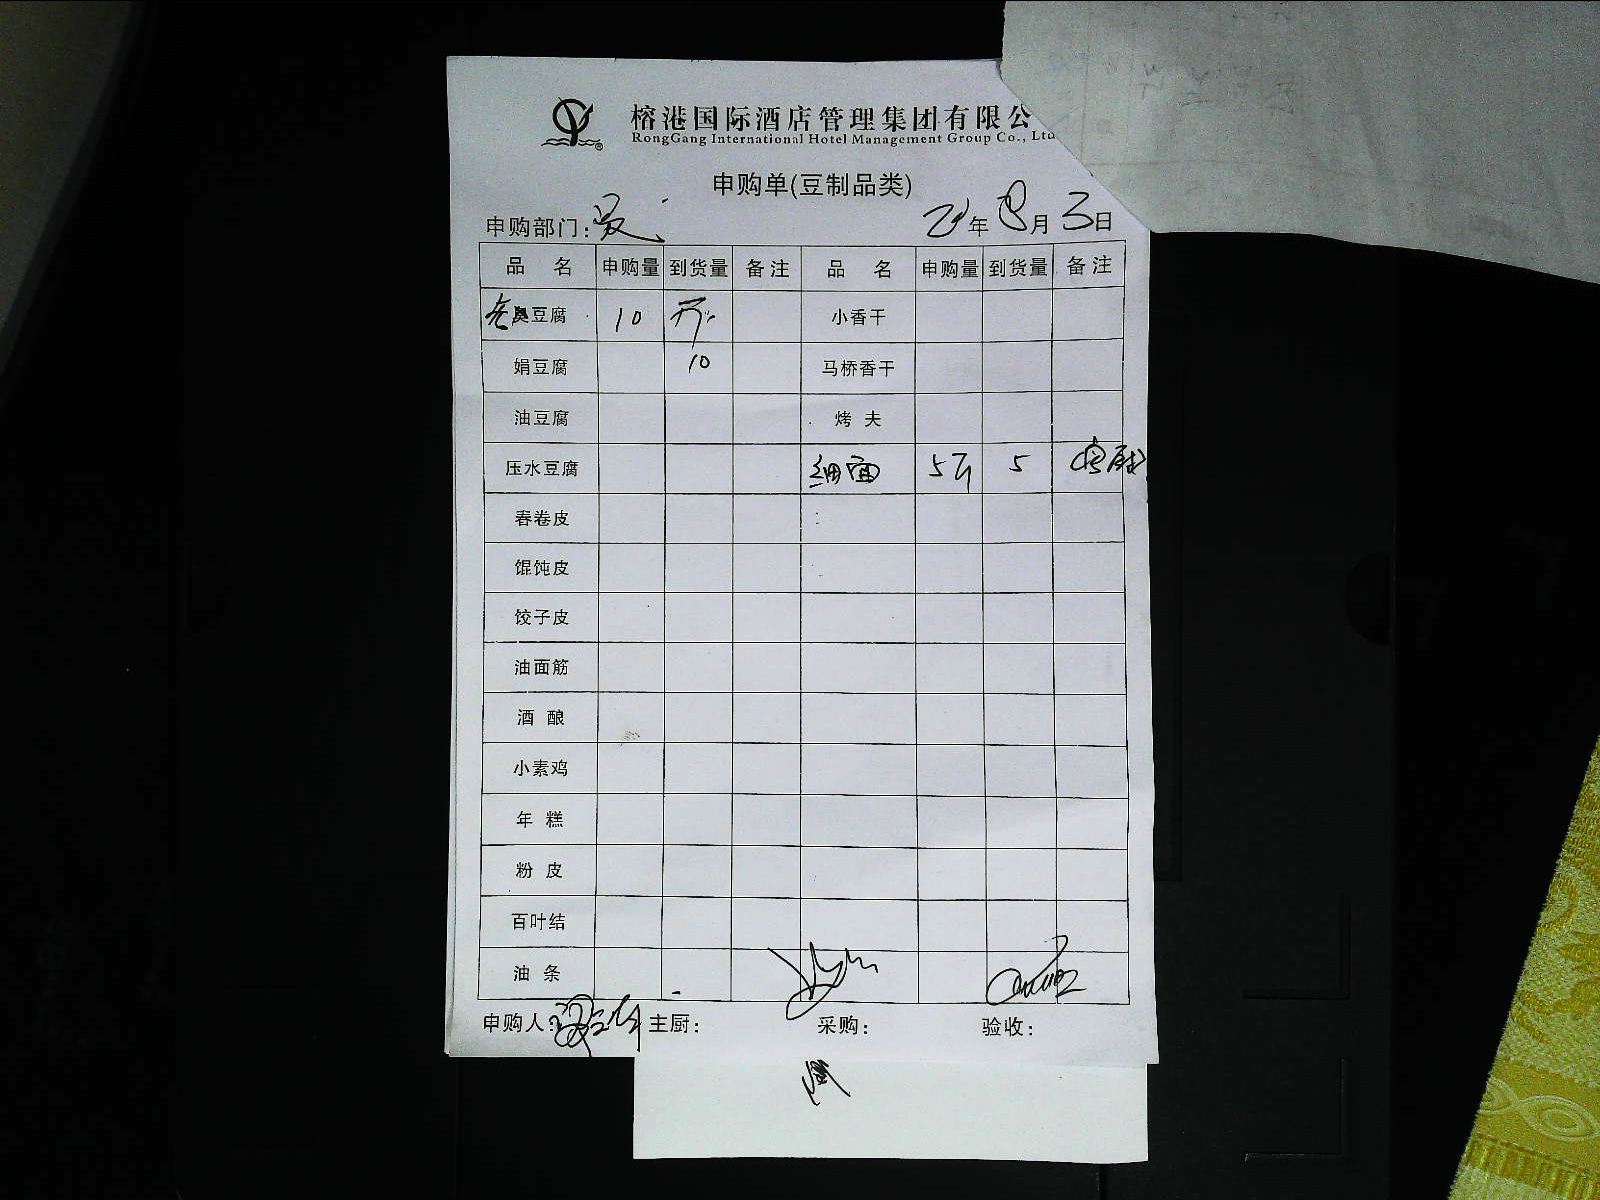 榕港国际酒店管理集团有限公
RongGang International Hotel Management Group Co., Ltd
申购单(豆制品类)
申购部门: 年 8月 3日
品 名 申购量 到货量 备注 品 名 申购量 到货量 备注
豆腐 10 小香干
娟豆腐 10 马桥香干
油豆腐 烤 夫
压水豆腐 细面 5斤 5
春卷皮
馄饨皮
饺子皮
油面筋
酒 酿
小素鸡
年 糕
粉 皮
百叶结
油 条
申购人: 主厨: 采购: 验收: